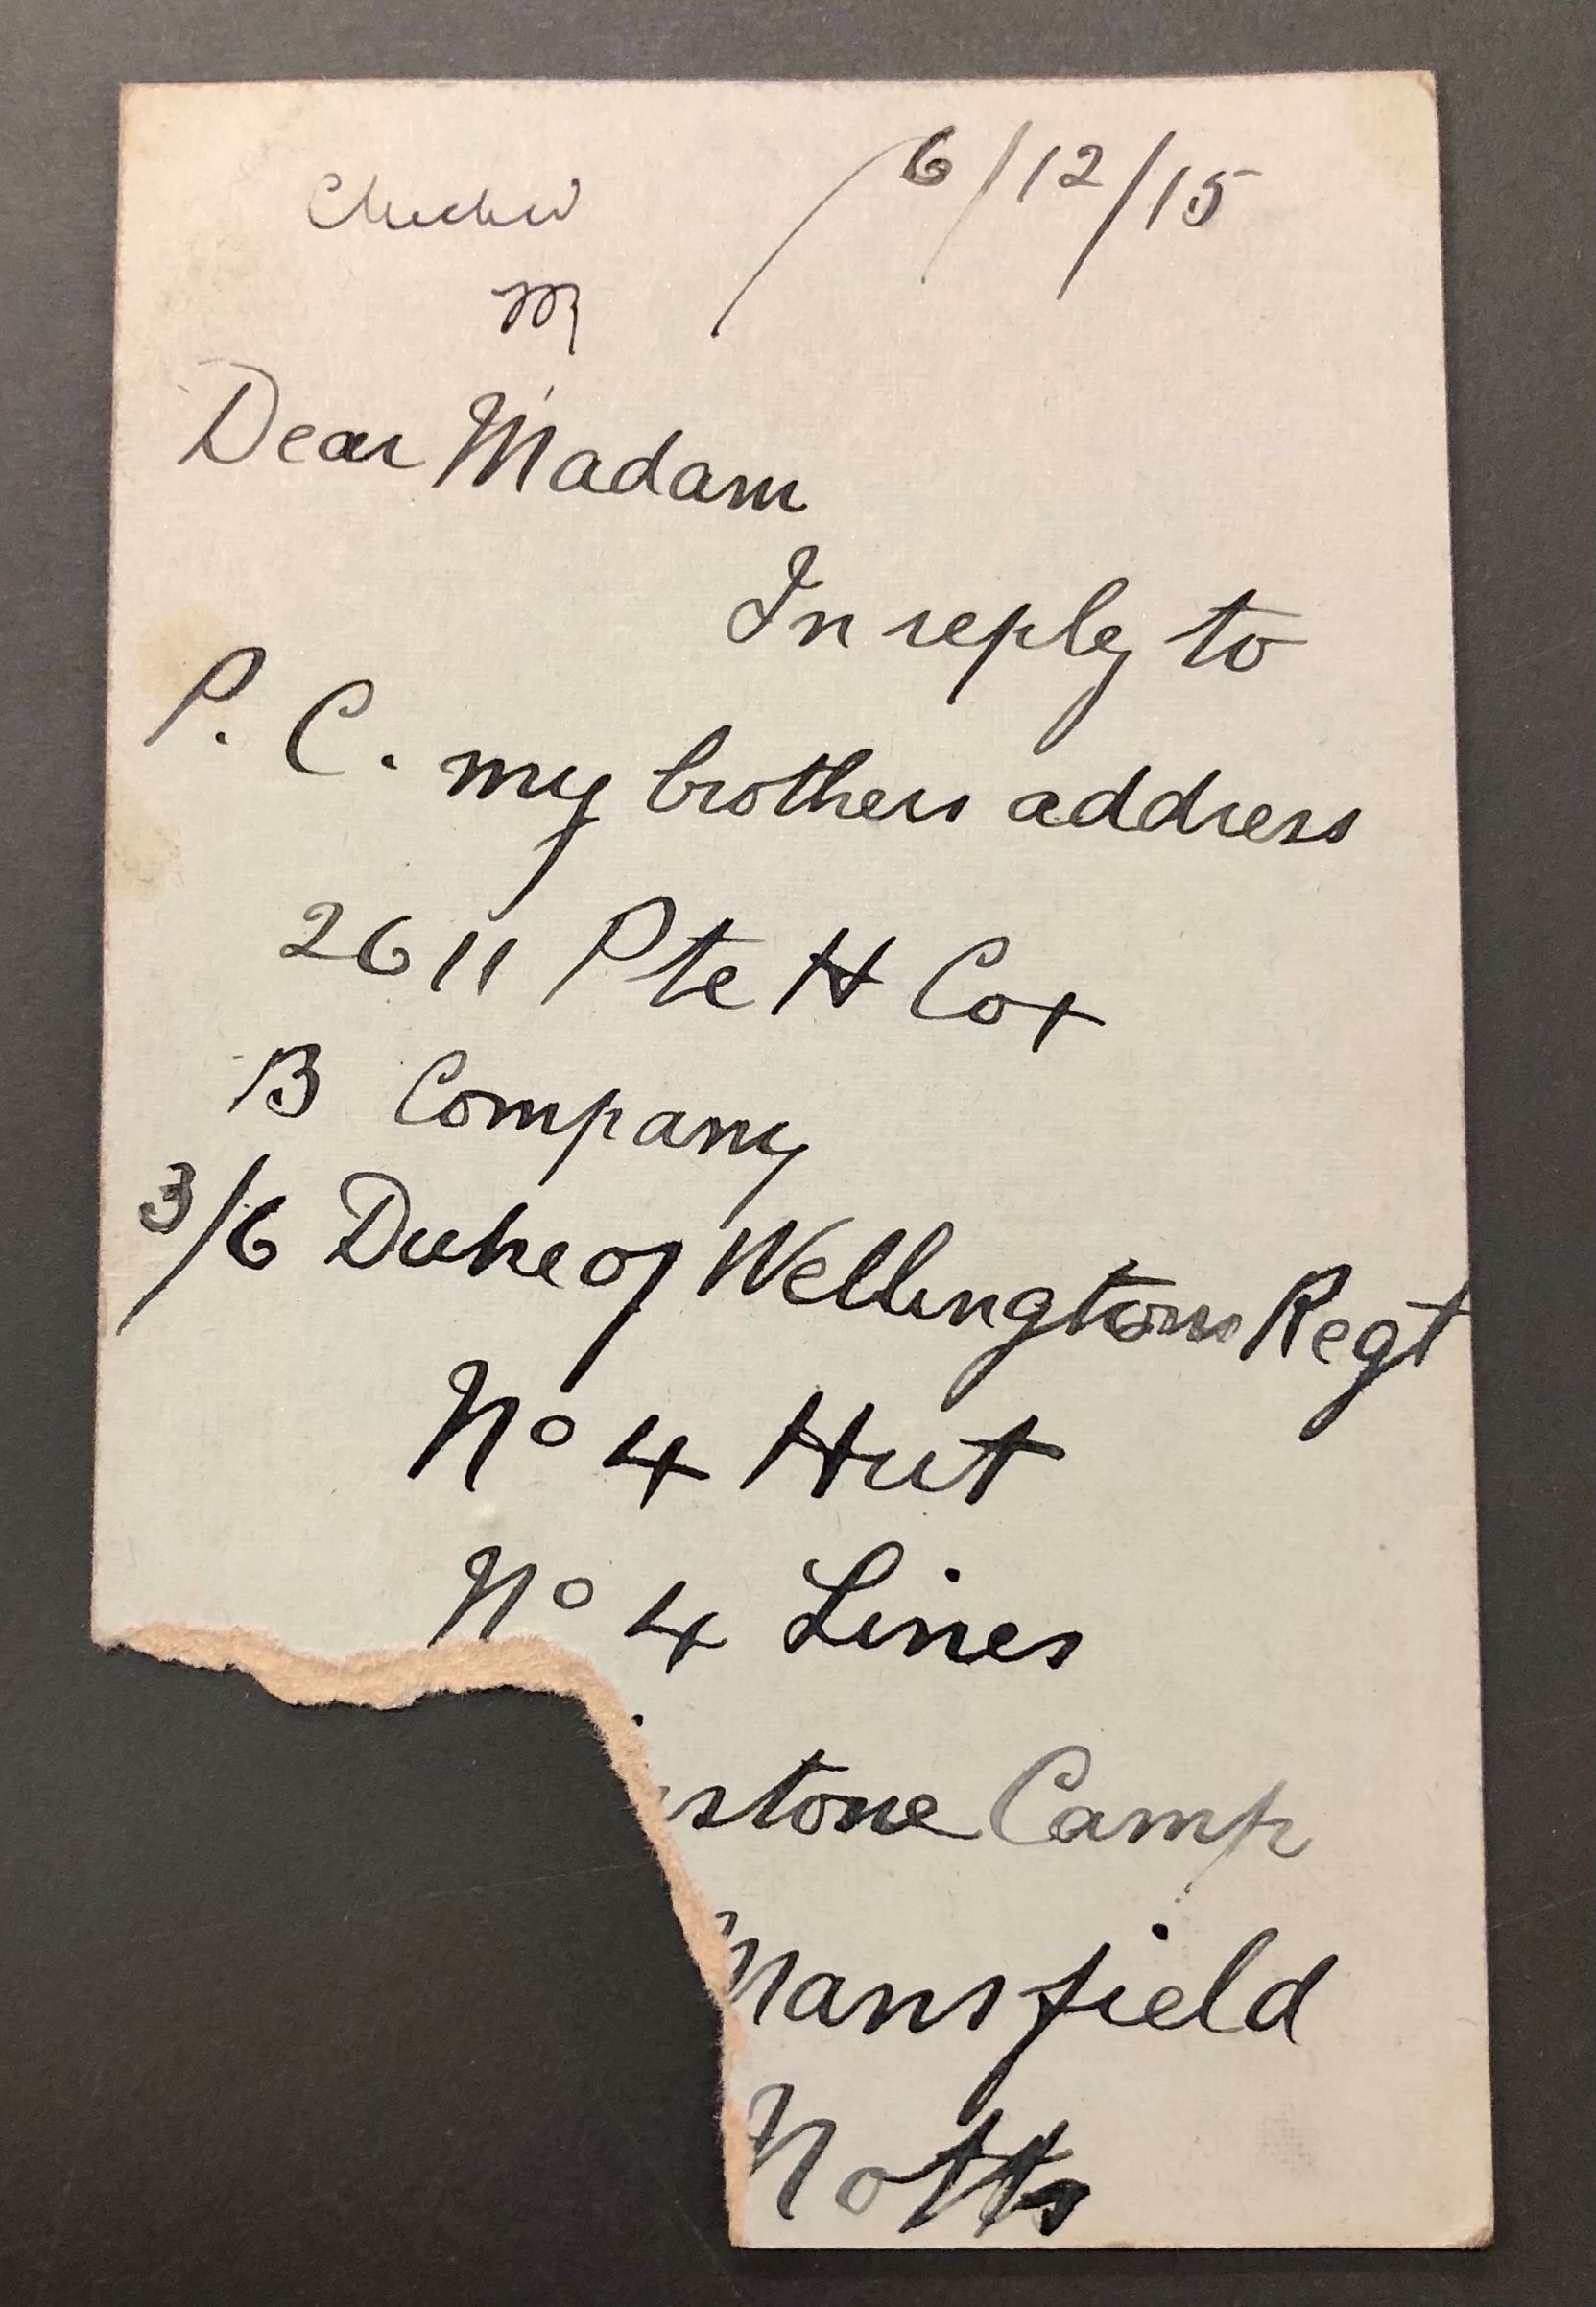 Checked 6/12/15
M
Dear Madam
In reply to
P. C. my brothers address
2611 Pte H Cox
B Company
3/6 Duke of Wellingtons Regt
No 4 Hut
No 4 Lines
stone Camp
Mansfield
Notts